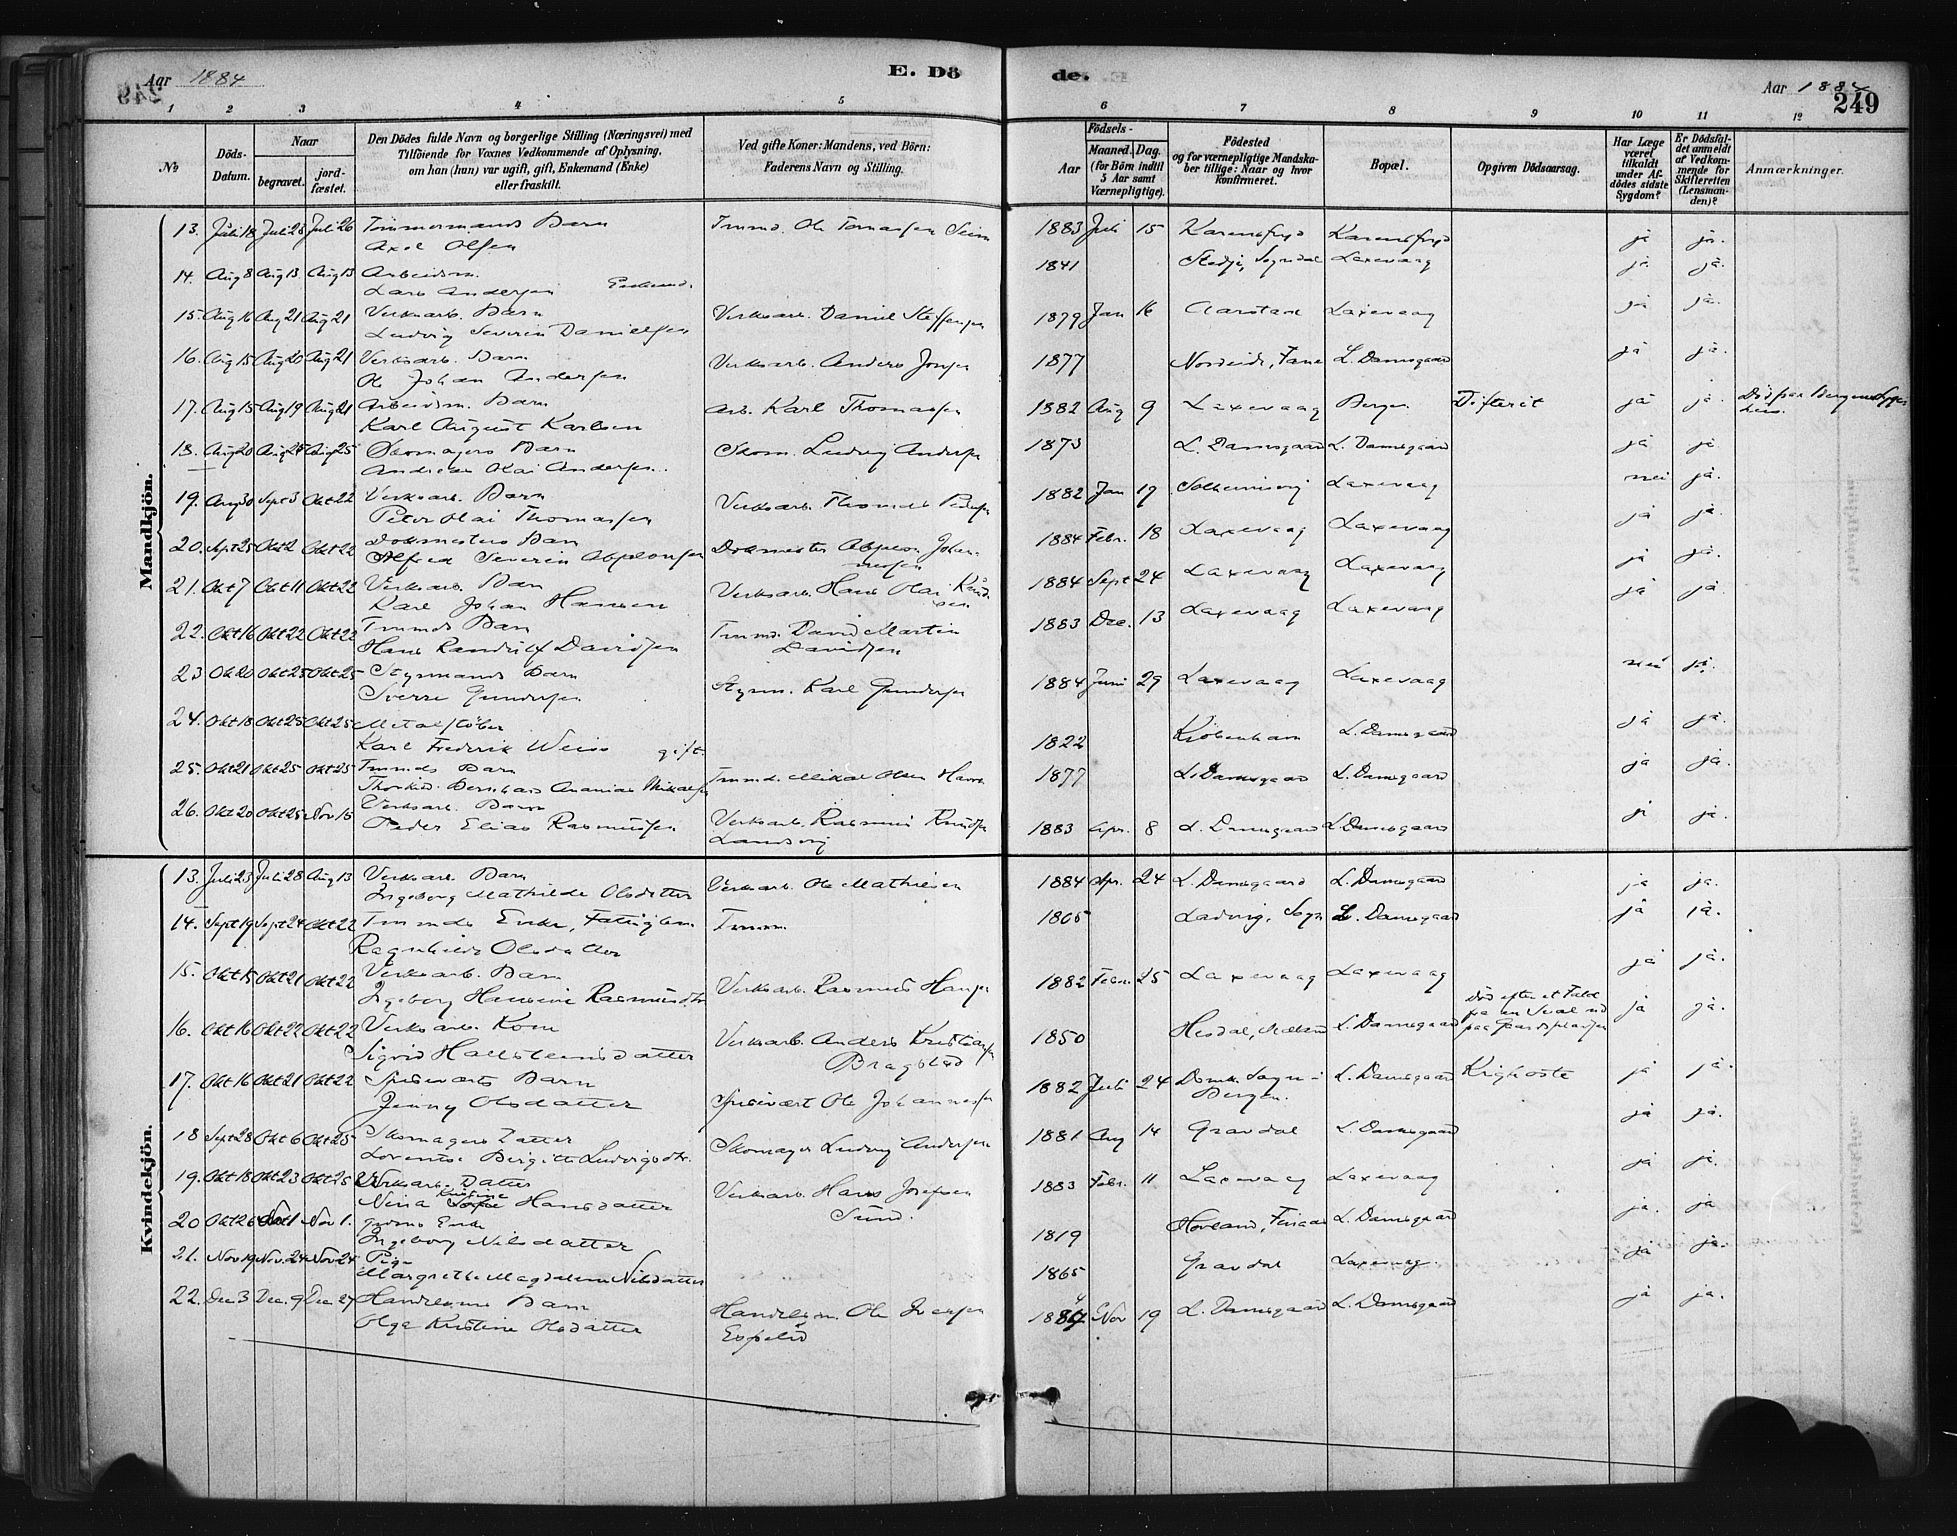 Aar 1884
E. Dö
de.
Aar 1884
249
1 2 3 4 5 6 7 8 9 10 11 12
No
Döds-Datum.
Naar
begravet.
jord-fæstet.
Den Dödes fulde Navn og borgerlige Stilling (Næringsvei) med
Tilföiende for Voxnes Vedkommende af Oplysning,
om han (hun) var ugift, gift, Enkemand (Enke)
eller fraskilt.
Ved gifte Koner: Mandens, ved Börn:
Faderens Navn og Stilling.
Aar
Födsels-
Maaned. Dag.
(for Börn indtil
5 Aar samt
Værnepligtige).
Födested
og for værnepligtige Mandska-
ber tillige: Naar og hvor
Konfirmeret.
Bopæl.
Opgiven Dödsaarsag.
Har Læge
været
tilkaldt
under Af-
dödes sidste
Sygdom?
Er Dödsfal-
det anmeldt
af Vedkom-
mende for
Skifteretten
(Lensman-
den)?
Anmærkninger.
Mandkjön.
13. Juli 18 Juli 23 Juli 26 Tømmermands Barn Tmmd. Ole Tomassen Seim 1883 Juli 15 Karensfryd Karensfryd ja ja.
Axel Olsen
14. Aug 8 Aug 13 Aug 13 Arbeidsm. 1841 Stedje, Sogndal Laxevaag ja ja.
Lars Andersen
15. Aug 16 Aug 21 Aug 21 Verksarb. Barn Verksarb. Daniel Steffensen 1879 Jan 16 Aarstad Laxevaag ja ja.
Ludvig Severin Danielsen
16. Aug 15 Aug 20 Aug 21 Verksarb. Barn Verksarb. Anders 1877 Nordeide, Fane L. Damsgaard ja ja.
Ole Johan Andersen
17. Aug 15 Aug 19 Aug 21 Arbeidsm. Barn Arb. Karl Thomassen 1882 Aug 9 Laxevaag Bergen Difterit ja ja. Död paa Bergens Syge-
hus.
Karl August Karlsen
18. Aug 20 Aug 24 Aug 25 Skomagers Barn Skom. Ludvig Andersen 1873 L. Damsgaard L. Damsgaard ja ja
Andreas Kai Andersen
19. Aug 30 Sept 3 Okt 22 Verksarb. Barn Verksarb. Thomas Pedersen 1882 Jan 17 Solheimsvig Laxevaag nei ja.
Peter Olai Thomassen
20. Sept 25 Okt 2 Okt 22 Dokmesters Barn Dokmester Absalon Johan- 1884 Febr. 18 Laxevaag Laxevaag ja ja.
nesen
Alfred Severin Absalonsen
21. Okt 7 Okt 11 Okt 22 Verksarb. Barn Verksarb. Hans Olai Knud- 1884 Sept 24 Laxevaag Laxevaag ja ja.
sen
Karl Johan Hansen
22. Okt 16 Okt 22 Okt 22 Tmmds Barn Tmmd. David Martin 1883 Dec. 13 Laxevaag Laxevaag ja ja.
Hans Randulf Davidsen Davidsen
23 Ok 20 Okt 25 Okt 25 Styrmands Barn Styrm. Karl Gundersen 1884 Juni 29 Laxevaag Laxevaag nei ja.
Sverre Gundersen
24. Okt 18 Okt 25 Okt 25 Metalstøber
Karl Frederik Weiss gift. 1822 Kiöbenhavn L. Damsgaard ja ja.
25. Okt 21 Okt 25 Okt 25 Tmmds Barn Tmmd. Mikal Olsen 1877 L. Damsgaard L. Damsgaard ja ja.
Bernhard Ananias Mikalsen
26. Okt 20 Okt 25 Nov 15 Verksarb. Barn Verksarb. Rasmus Knudsen 1883 Apr. 8 L. Damsgaard L. Damsgaard ja ja.
Peder Elias Rasmussen Landsvig
Kvindekjön.
13. Juli 23 Juli 28 Aug 13 Verksarb. Barn Verksarb. Ole Mathiesen 1884 Apr. 24 L. Damsgaard L. Damsgaard ja ja.
Ingeborg Mathilde Olsdatter
14. Sept 19 Sept 24 Okt 22 Tmmds Enke, Fattiglem Tmmm. 1805 Ladvig, Sogn L. Damsgaard ja ja.
Ragnhilde Olsdatter
15. Okt 15 Okt 21 Okt 22 Verksarb. Barn Verksarb. Rasmus Hansen 1882 Febr. 25 Laxevaag Laxevaag ja ja.
Ingeborg Hansine Rasmusdtr.
16. Okt 16 Okt 22 Okt 22 Verksarb. Kone Verksarb. Anders Kristiansen 1850 L. Damsgaard Död efter et Fald
fra en Sval ned
paa Gaardspladsen ja ja.
Sigrid Hallsteinsdatter Bragstad
17. Okt 16 Okt 21 Okt 22 Spiseværts Barn Spisevært Ole Johannessen 1882 Juli 24 Domk. Sogn i L. Damsgaard Kighoste ja ja.
Jenny Olsdatter Bergen.
18 Sept 28 Okt 6 Okt 25 Skomagers Datter Skomager Ludvig Andersen 1881 Aug 14 Gravdal L. Damsgaard ja ja.
Lorentse Birgitte Ludvigsdtr.
19. Okt 18 Okt 23 Okt 25 Verksarb. Datter Verksarb. Hans Josefsen 1883 Febr. 11 Laxevaag Laxevaag ja ja.
Nina Kristine Hansdatter Sund.
20 Okt 26 Nov 1 Nov 1. Enke
Ingeborg Nilsdatter 1819 Hovland, L. Damsgaard ja. ja
21. Nov 19 Nov. 24 Nov 24 Pige
Margrethe Magdalene Nilsdatter 1865 Gravdal Laxevaag ja ja.
22. Dec 3 Dec. 9 Dec 27 Handlsms Barn Handelsm. Ole Iversen 1884 Nov 19 L. Damsgaard L. Damsgaard ja ja.
Olga Kristine Olsdatter Espelid